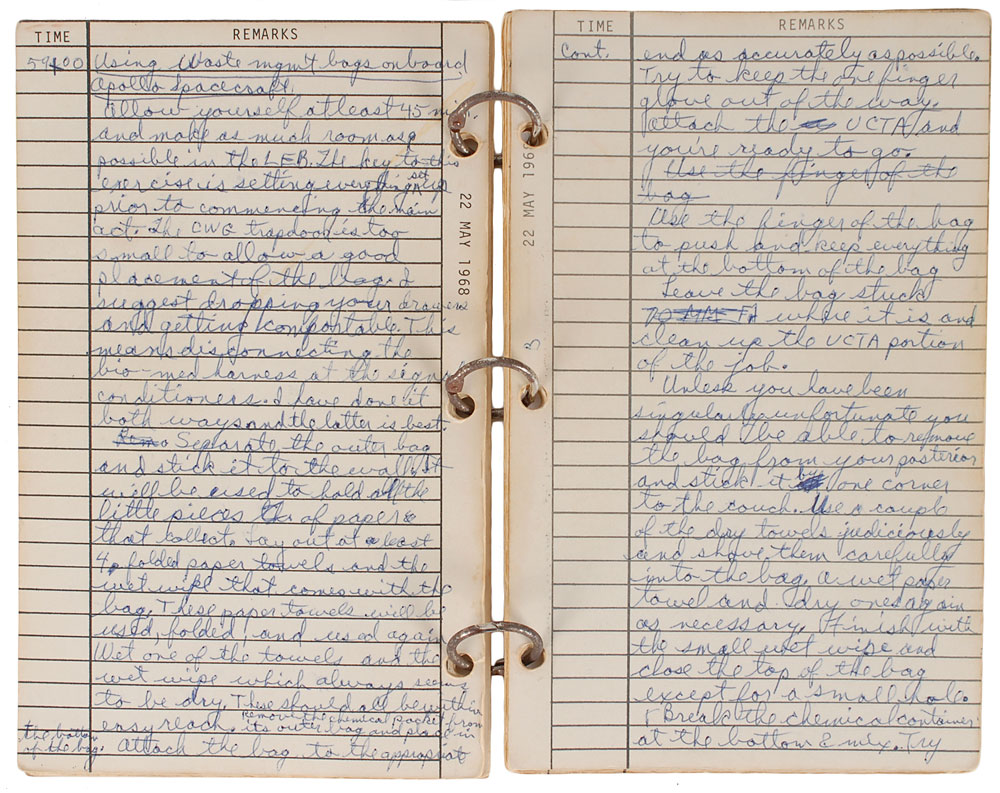 TIME REMARKS
59400 Using Waste mgmt bags onboard
Apollo Spacecraft.
Allow yourself at least 45 mi
and make as much room as
possible in the LEB. The key to this
exercise is setting everything up
prior to commencing the main
act. The CWG trapdoor is too
small to allow a good
placement of the bag. I
suggest dropping your drawers
and getting comfortable. This
means disconnecting the
bio-med harness at the signal
conditioners. I have done it
both ways and the latter is best
Remo Separate the outer bag
and stick it to the wall. It
will be used to hold all the
little pieces of paper
that collect. Lay out at least
4 folded paper towels and the
wet wipe that comes with the
bag. These paper towels will be
used, folded, and used again
Wet one of the towels and the
wet wipe which always seems
to be dry. These should all be within
easy reach. Remove the chemical packet from
its outer bag and place in
the bottom
of the bag.
Attach the bag to the appropriat
22 MAY 1968
TIME REMARKS
Cont. end as accurately as possible.
Try to keep the one finger
glove out of the way.
Attach the UCTA and
you're ready to go.
Use the finger of the
bag
Use the finger of the bag
to push and keep everything
at the bottom of the bag
Leave the bag stuck
where it is and
clean up the UCTA portion
of the job.
Unless you have been
singularly unfortunate you
should be able to remove
the bag from your posterior
and stick it by one corner
to the couch. Use a couple
of the dry towels judiciously
and shove them carefully
into the bag, a wet paper
towel and dry ones again
as necessary. Finish with
the small wet wipe and
close the top of the bag
except for a small hole.
Break the chemical container
at the bottom & mix. Try
22 MAY 1968
3